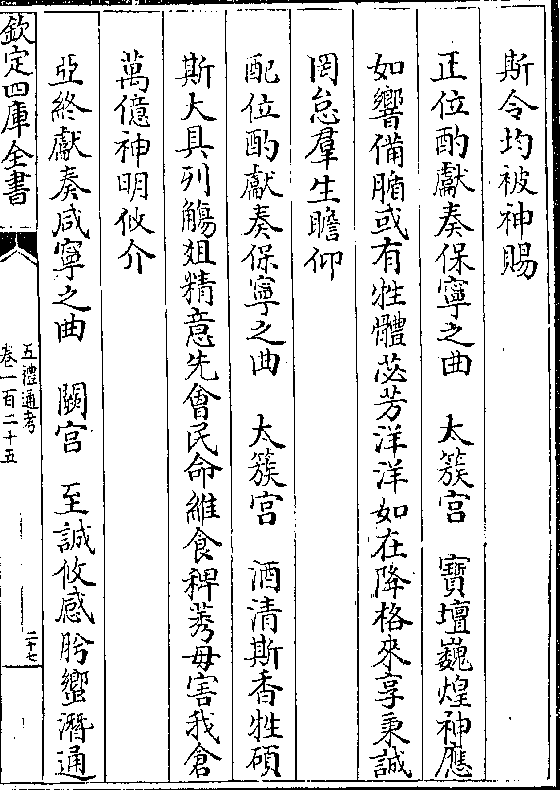 斯令均被神賜
正位酌獻奏保寧之曲　太簇宫　寶壇巍煌神應
如響備腯或有牲體苾芳洋洋如在降格來享秉誠
罔怠羣生瞻仰
配位酌獻奏保寧之曲　太簇宫　酒清斯香牲碩
斯大具列觴俎精意先會民命維食稗莠毋害我倉
萬億神明攸介
亞終獻奏咸寧之曲　闕宫　至誠攸感肹蠁潛通
欽定四庫全書
五禮通考
卷一百二十五
二十七